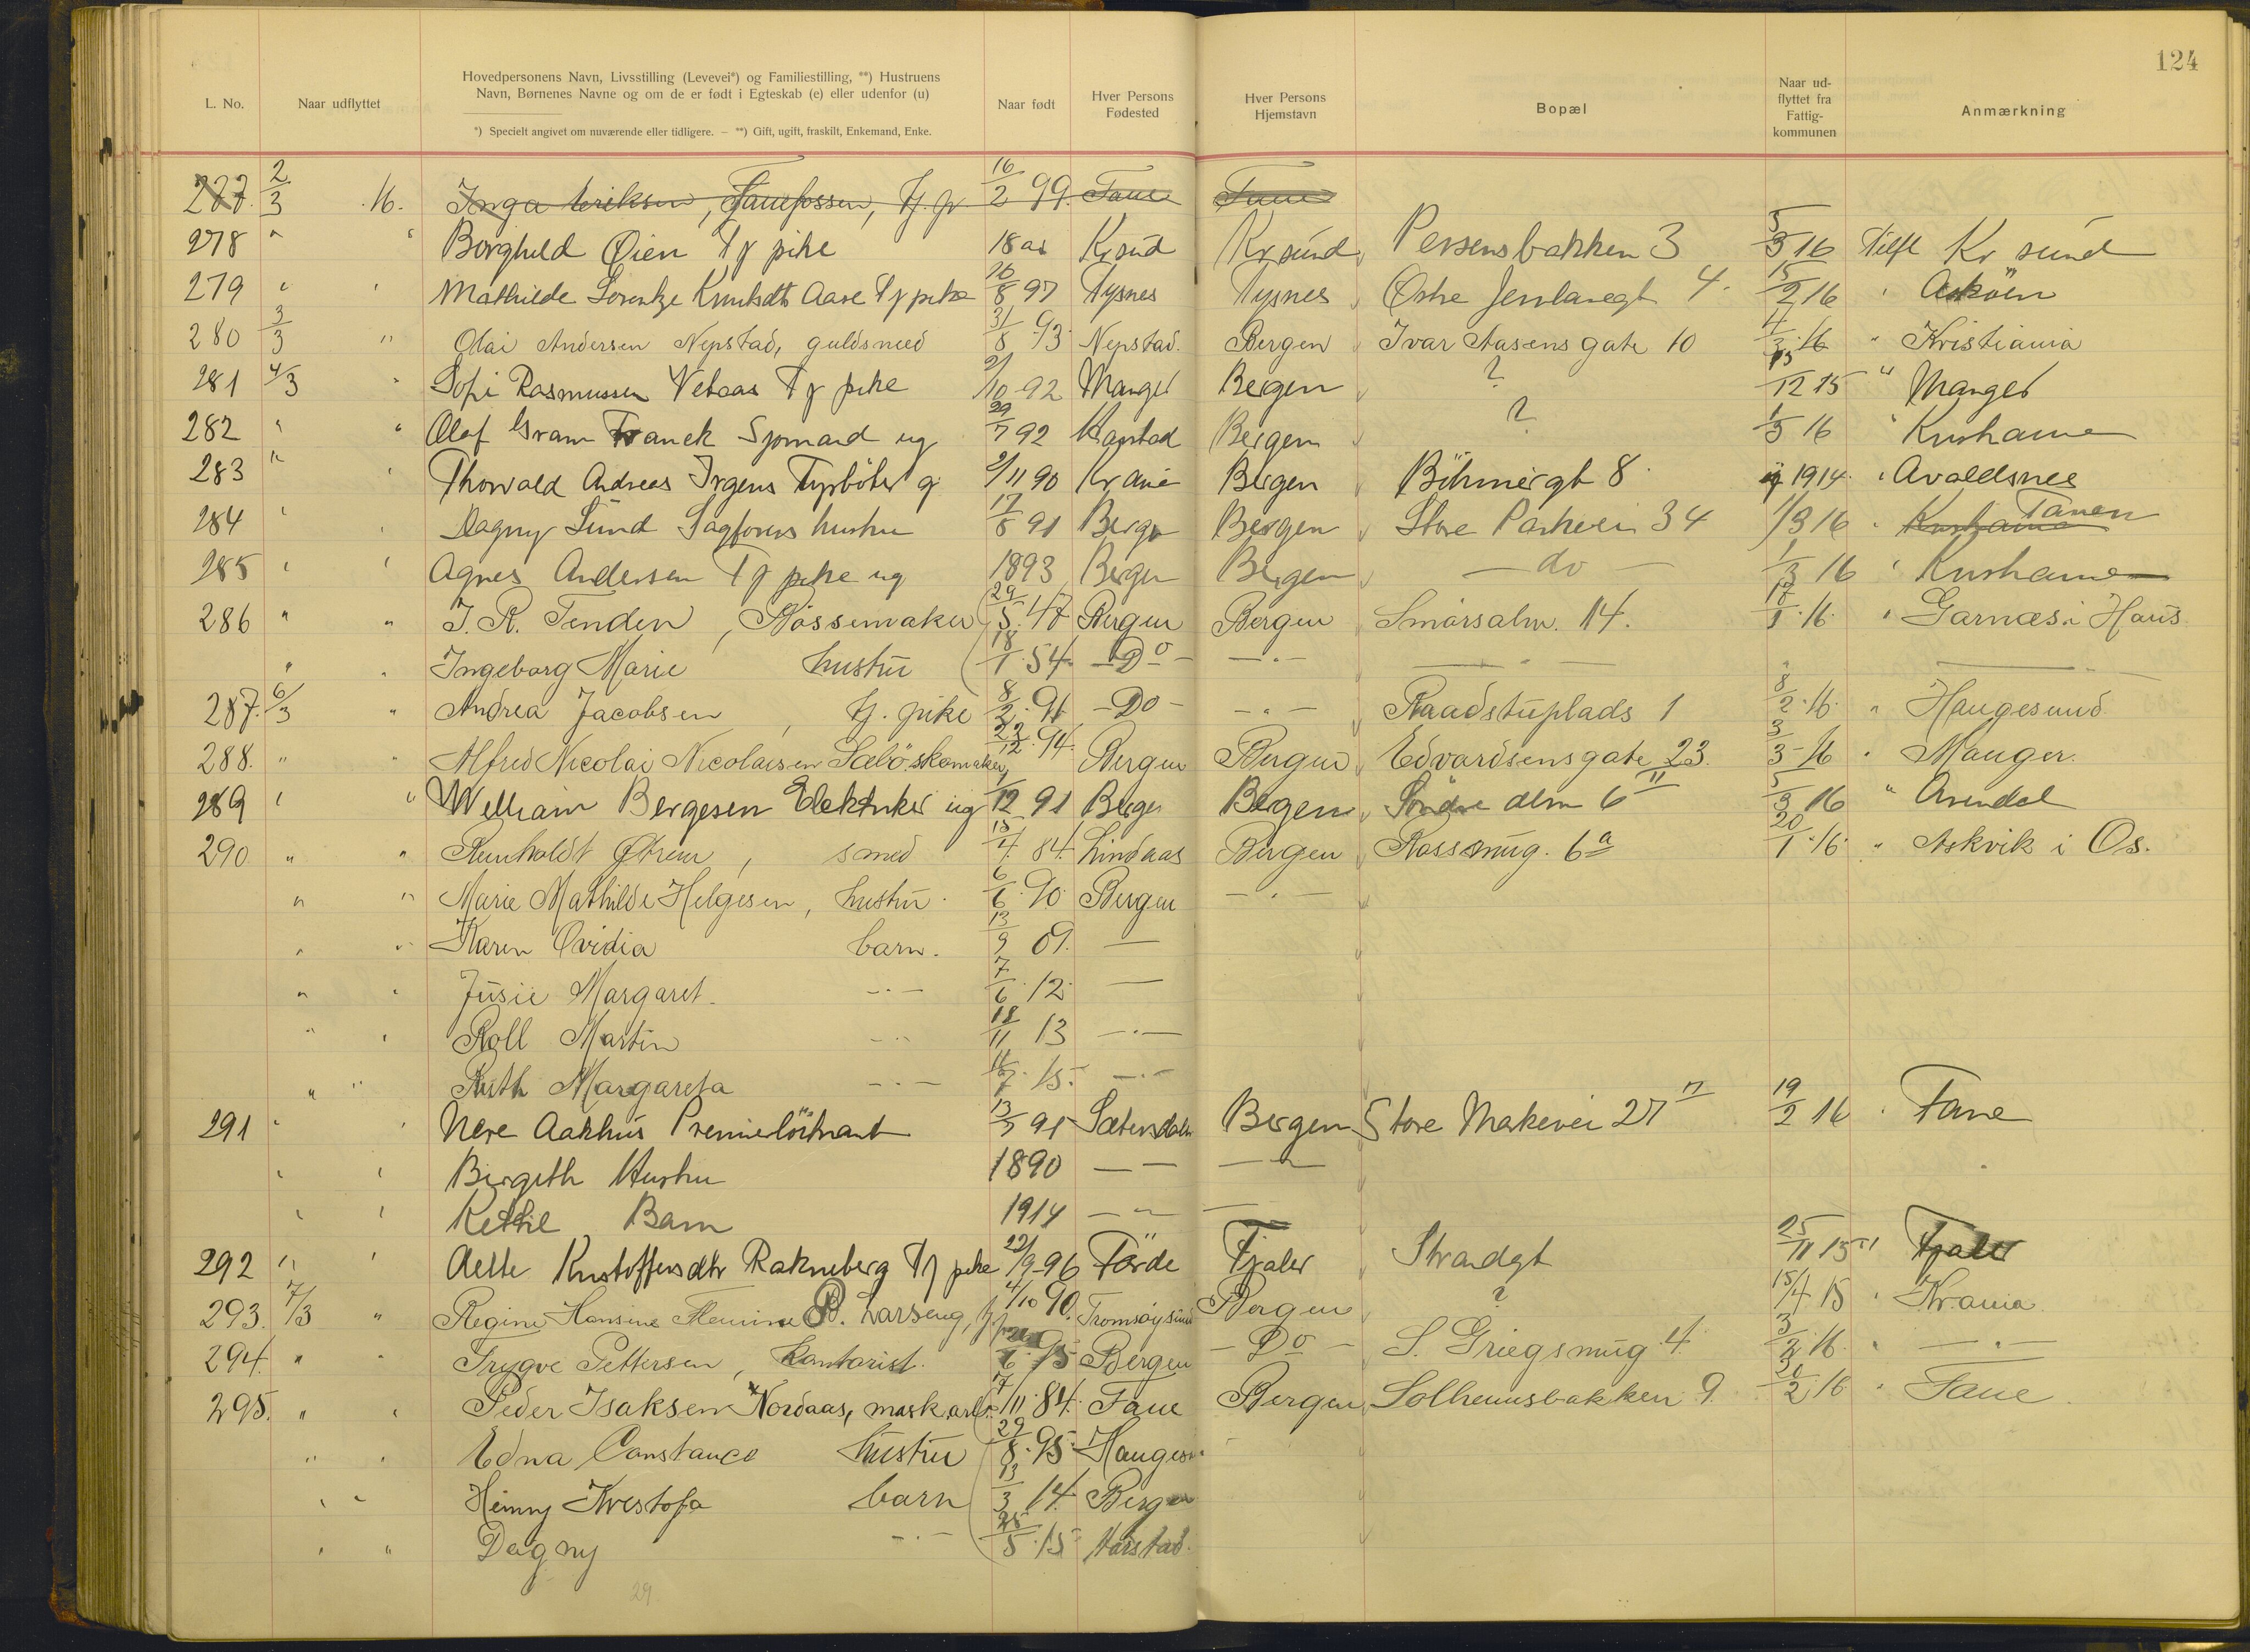 124
L. No. Naar udflyttet Hovedpersonens Navn, Livsstilling (Levevei*) og Familiestilling, **) Hustruens Navn, Børnenes Navne og om de er født i Egteskab (e) eller udenfor (u) Naar født Hver Persons Fødested Hver Persons Hjemstavn Bopæl Naar ud-flyttet fra Fattig-kommunen Anmærkning
*) Specielt angivet om nuværende eller tidligere. — **) Gift, ugift, fraskilt, Enkemand, Enke.
277. 2/3 16. Inga Eriksen, Tj. p 16/2 99. Fane Fane
278 " " Borghild Øien Tj pike 18 Kr sund Kr sund Persensbakken 3 5/3 16 Tilfl Kr sund
279 " " Mathilde Lorentze Knutsdtr Aase Tj pike 16/8 97 Tysnes Tysnes Østre 4. 15/2 16 " Askøen
280 3/3 " Olai Andersen Nepstad, guldsmed 31/8 93 Nepstad. Bergen Ivar Aasens gate 10 4/3 16 " Kristiania
281 4/3 " Sofi Rasmussen Vetaas Tj pike 2/10 92 Manger Bergen ? 12 15 " Manger
282 " " Olaf Gram Franck Sjømand ug 29/7 92 Bergen ? 1/3 16 " Krishania
283 " " Thorvald Andreas Irgens Fyrbøter g 2/11 90 Kr ania Bergen Böhmergt 8 1914 " Avaldsnes
284 " " Dagny Lund Sagførers hustru 17/8 91 Bergen Bergen Store Parkvei 34 1/3 16 " Krishania Fanen
285 " " Agnes Andersen Tj pike ug 1893 Bergen Bergen — do — 1/3 16 " Krishania
286 " " J. R. Tenden, Bøssemaker 29/5 47 Bergen Bergen Smörsalm. 14. 17/1 16 " Garnæs i Haus
" " Ingeborg Marie hustru 18/1 54 — Do — — " —
287. 6/3 " Andrea Jacobsen, tj. pike 8/2 91 — Do — — " — Raadstuplads 1 8/2 16 " Haugesund
288. " " Alfred Nicolai Nicolaisen Sæbö, skomaker 22/12 94 Bergen Bergen Edvardsens gate 23 3/3 16 " Manger.
289 " " William Bergesen Elektriker ug 12 91 Bergen Bergen Söndre alm 6 II 5/3 16 " Arendal
290 " " Reinholdt Øhren, smed 15/4 84. Lindaas Bergen Rossesmug. 6 a 20/1 16 " Askvik i Os.
" " Marie Mathilde Helgesen, hustru. 6/6 90 Bergen — " —
" " Karen Ovidia barn. 13/9 09. —
" " Jusie Margaret. — " — 7/6 12 —
" " Roll Martin — " — 18/11 13 — " —
" " Ruth Margareta — " — 15 — " —
291 " " Nere Aakhus Premierløitnant 13 91 Sætersdalen Bergen Store Markevei 27 II 19/2 16 " Fane
" " Birgith Hustru 1890 — — — " —
" " Kethil Barn 1914 — " — —
292 " " Kristoffersdtr Rakneberg Tj pike 22/9 96 Førde Fjaler Strandgt 25/11 15 " Fjaler
293. 7/3 " Regine Hansine B. Larseng, tj 4/10 90. Tromsøysund Bergen ? 15/4 15 " Kr.ania
294. " " Trygve Pettersen, kontorist. 6 95 Bergen — Do — S. Griegsmug. 4. 3/2 16 " — " —
295. " " Peder Isaksen Nordaas, mask.arb. 7/11 84. Fane Bergen Solheimsbakken 9. 20/2 16 " Fane
" " Edna Constance hustru 29/8 95 Haugesu
" " Henny Kristofa barn 13/3 14 Bergen
" " Dagny — " — 25/5 15 Harstad.
29.